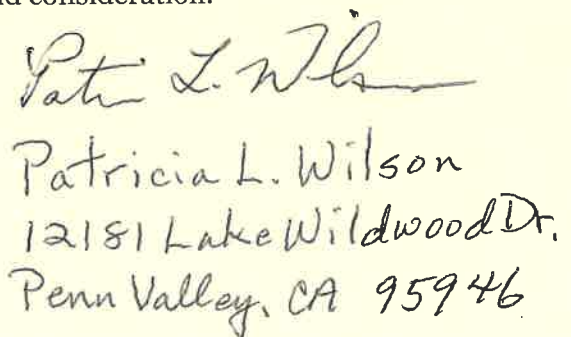 nd consideration.
Patricia L. Wilson
Patricia L. Wilson
12181 Lake Wildwood Dr.
Penn Valley, CA 95946